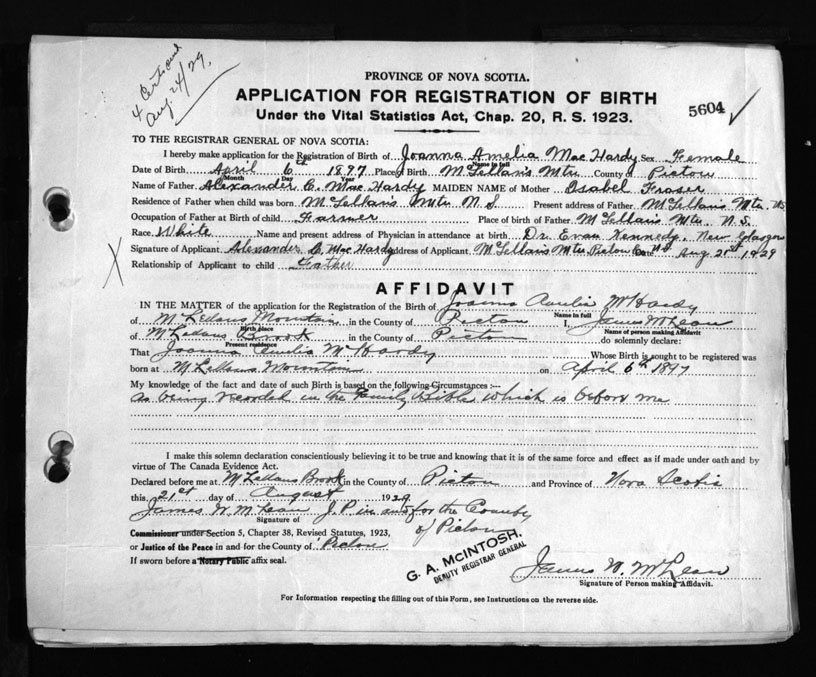 4 Certs and
Aug. 24/29,
PROVINCE OF NOVA SCOTIA.
APPLICATION FOR REGISTRATION OF BIRTH
Under the Vital Statistics Act, Chap. 20, R. S. 1923.
5604
TO THE REGISTRAR GENERAL OF NOVA SCOTIA:
I hereby make application for the Registration of Birth of Joanna Amelia Mac Hardy Sex Female
Name in full
Date of Birth April 6th 1897 Place of Birth McLellan's Mtn County of Pictou
Month Day Year
Name of Father Alexander C. Mac Hardy MAIDEN NAME of Mother Isabel Fraser
Residence of Father when child was born McLellan's Mtn N.S. Present address of Father McLellan's Mtn. NS
Occupation of Father at Birth of child Farmer Place of birth of Father McLellan's Mtn. N.S.
Race White Name and present address of Physician in attendance at birth Dr. Evan Kennedy. New Glasgow
Signature of Applicant Alexander C. Mac Hardy Address of Applicant McLellan's Mtn Pictou Co NS Date Aug 21st 1929
Relationship of Applicant to child Father
AFFIDAVIT
IN THE MATTER of the application for the Registration of the Birth of Joanna Amelia McHardy
Name in full
of McLellans Mountain in the County of Pictou I, James McLean
Birth place Name of person making Affidavit
of McLellans Brook in the County of Pictou do solemnly declare:
Present residence
That Joanna Amelia McHardy Whose Birth is sought to be registered was
born at McLellans Mountain on April 6th 1897
My knowledge of the fact and date of such Birth is based on the following Circumstances:—
as being recorded in the Family Bible which is before me
I make this solemn declaration conscientiously believing it to be true and knowing that it is of the same force and effect as if made under oath and by
virtue of The Canada Evidence Act.
Declared before me at McLellans Brook in the County of Pictou and Province of Nova Scotia
this 21st day of August 1929
James W. McLean J.P. in and for the County
Signature of
of Pictou
Commissioner under Section 5, Chapter 38, Revised Statutes, 1923,
or Justice of the Peace in and for the County of Pictou
If sworn before a Notary Public affix seal.
G. A. McINTOSH,
DEPUTY REGISTRAR GENERAL
James W. McLean
Signature of Person making Affidavit.
For Information respecting the filling out of this Form, see Instructions on the reverse side.